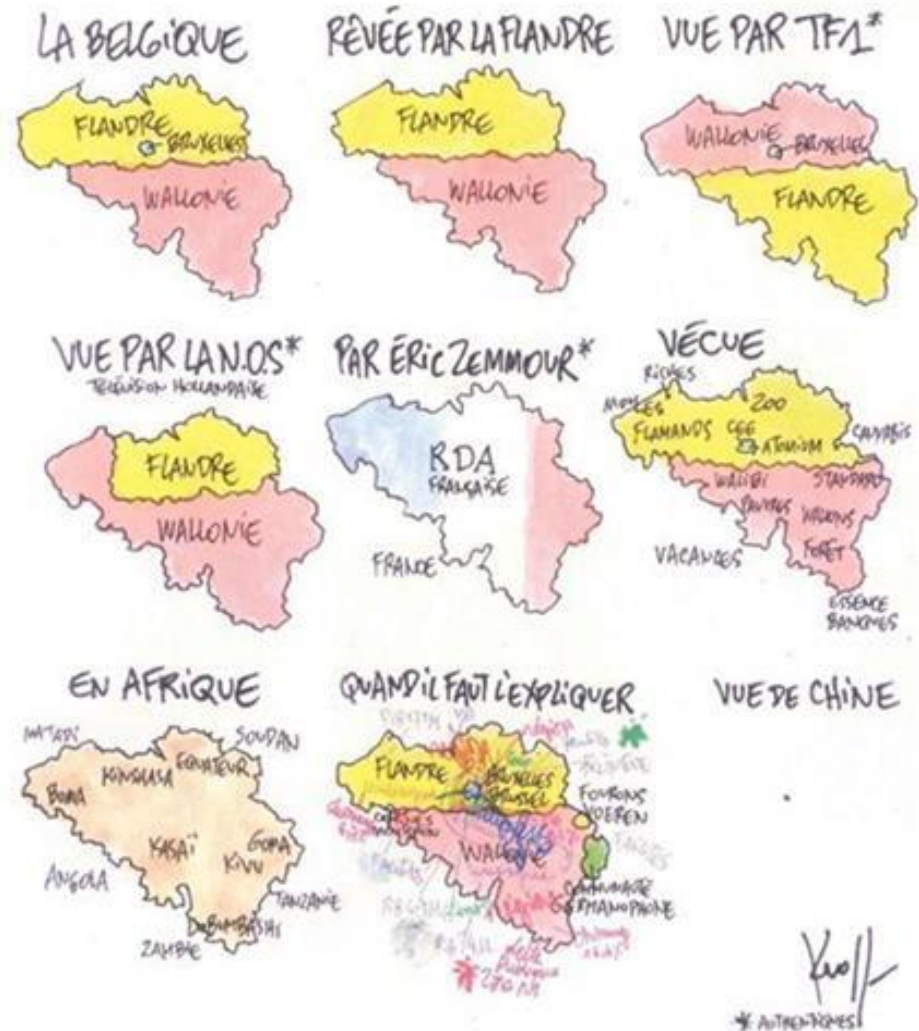 LA BELGIQUE
FLANDRE
BRUXELLES
WALLONIE
RÊVÉE PAR LA FLANDRE
FLANDRE
WALLONIE
VUE PAR TF1*
WALLONIE
BRUXELLES
FLANDRE
VUE PAR LA N.O.S*
TÉLÉVISION HOLLANDAISE
FLANDRE
WALLONIE
PAR ÉRIC ZEMMOUR*
RDA
FRANÇAISE
FRANCE
VÉCUE
RICHES
MOULES
ZOO
FLAMANDS CEE
ATOMIUM
CANNABIS
WALIBI
STANDARD
PAUVRES WALLONS
VACANCES
FORÊT
ESSENCE
BANQUES
EN AFRIQUE
MATADI
SOUDAN
KINSHASA
EQUATEUR
BOMA
KASAÏ
GOMA
KIVU
ANGOLA
TANZANIE
ZAMBIE
QUAND IL FAUT L'EXPLIQUER
FLANDRE
BRUXELLES
BRUSSEL
FOURONS
VOEREN
WALLONIE
COMMUNAUTÉ
GERMANOPHONE
VUE DE CHINE
Kroll
* AUTHENTIQUES